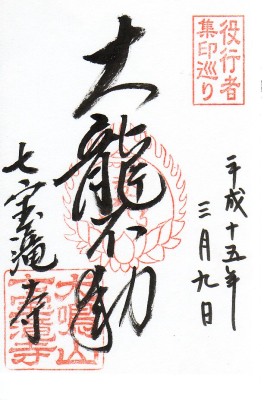 役行者
集印巡り
平成十五年
三月九日
大龍不動
七宝瀧寺
犬鳴山
七宝瀧寺